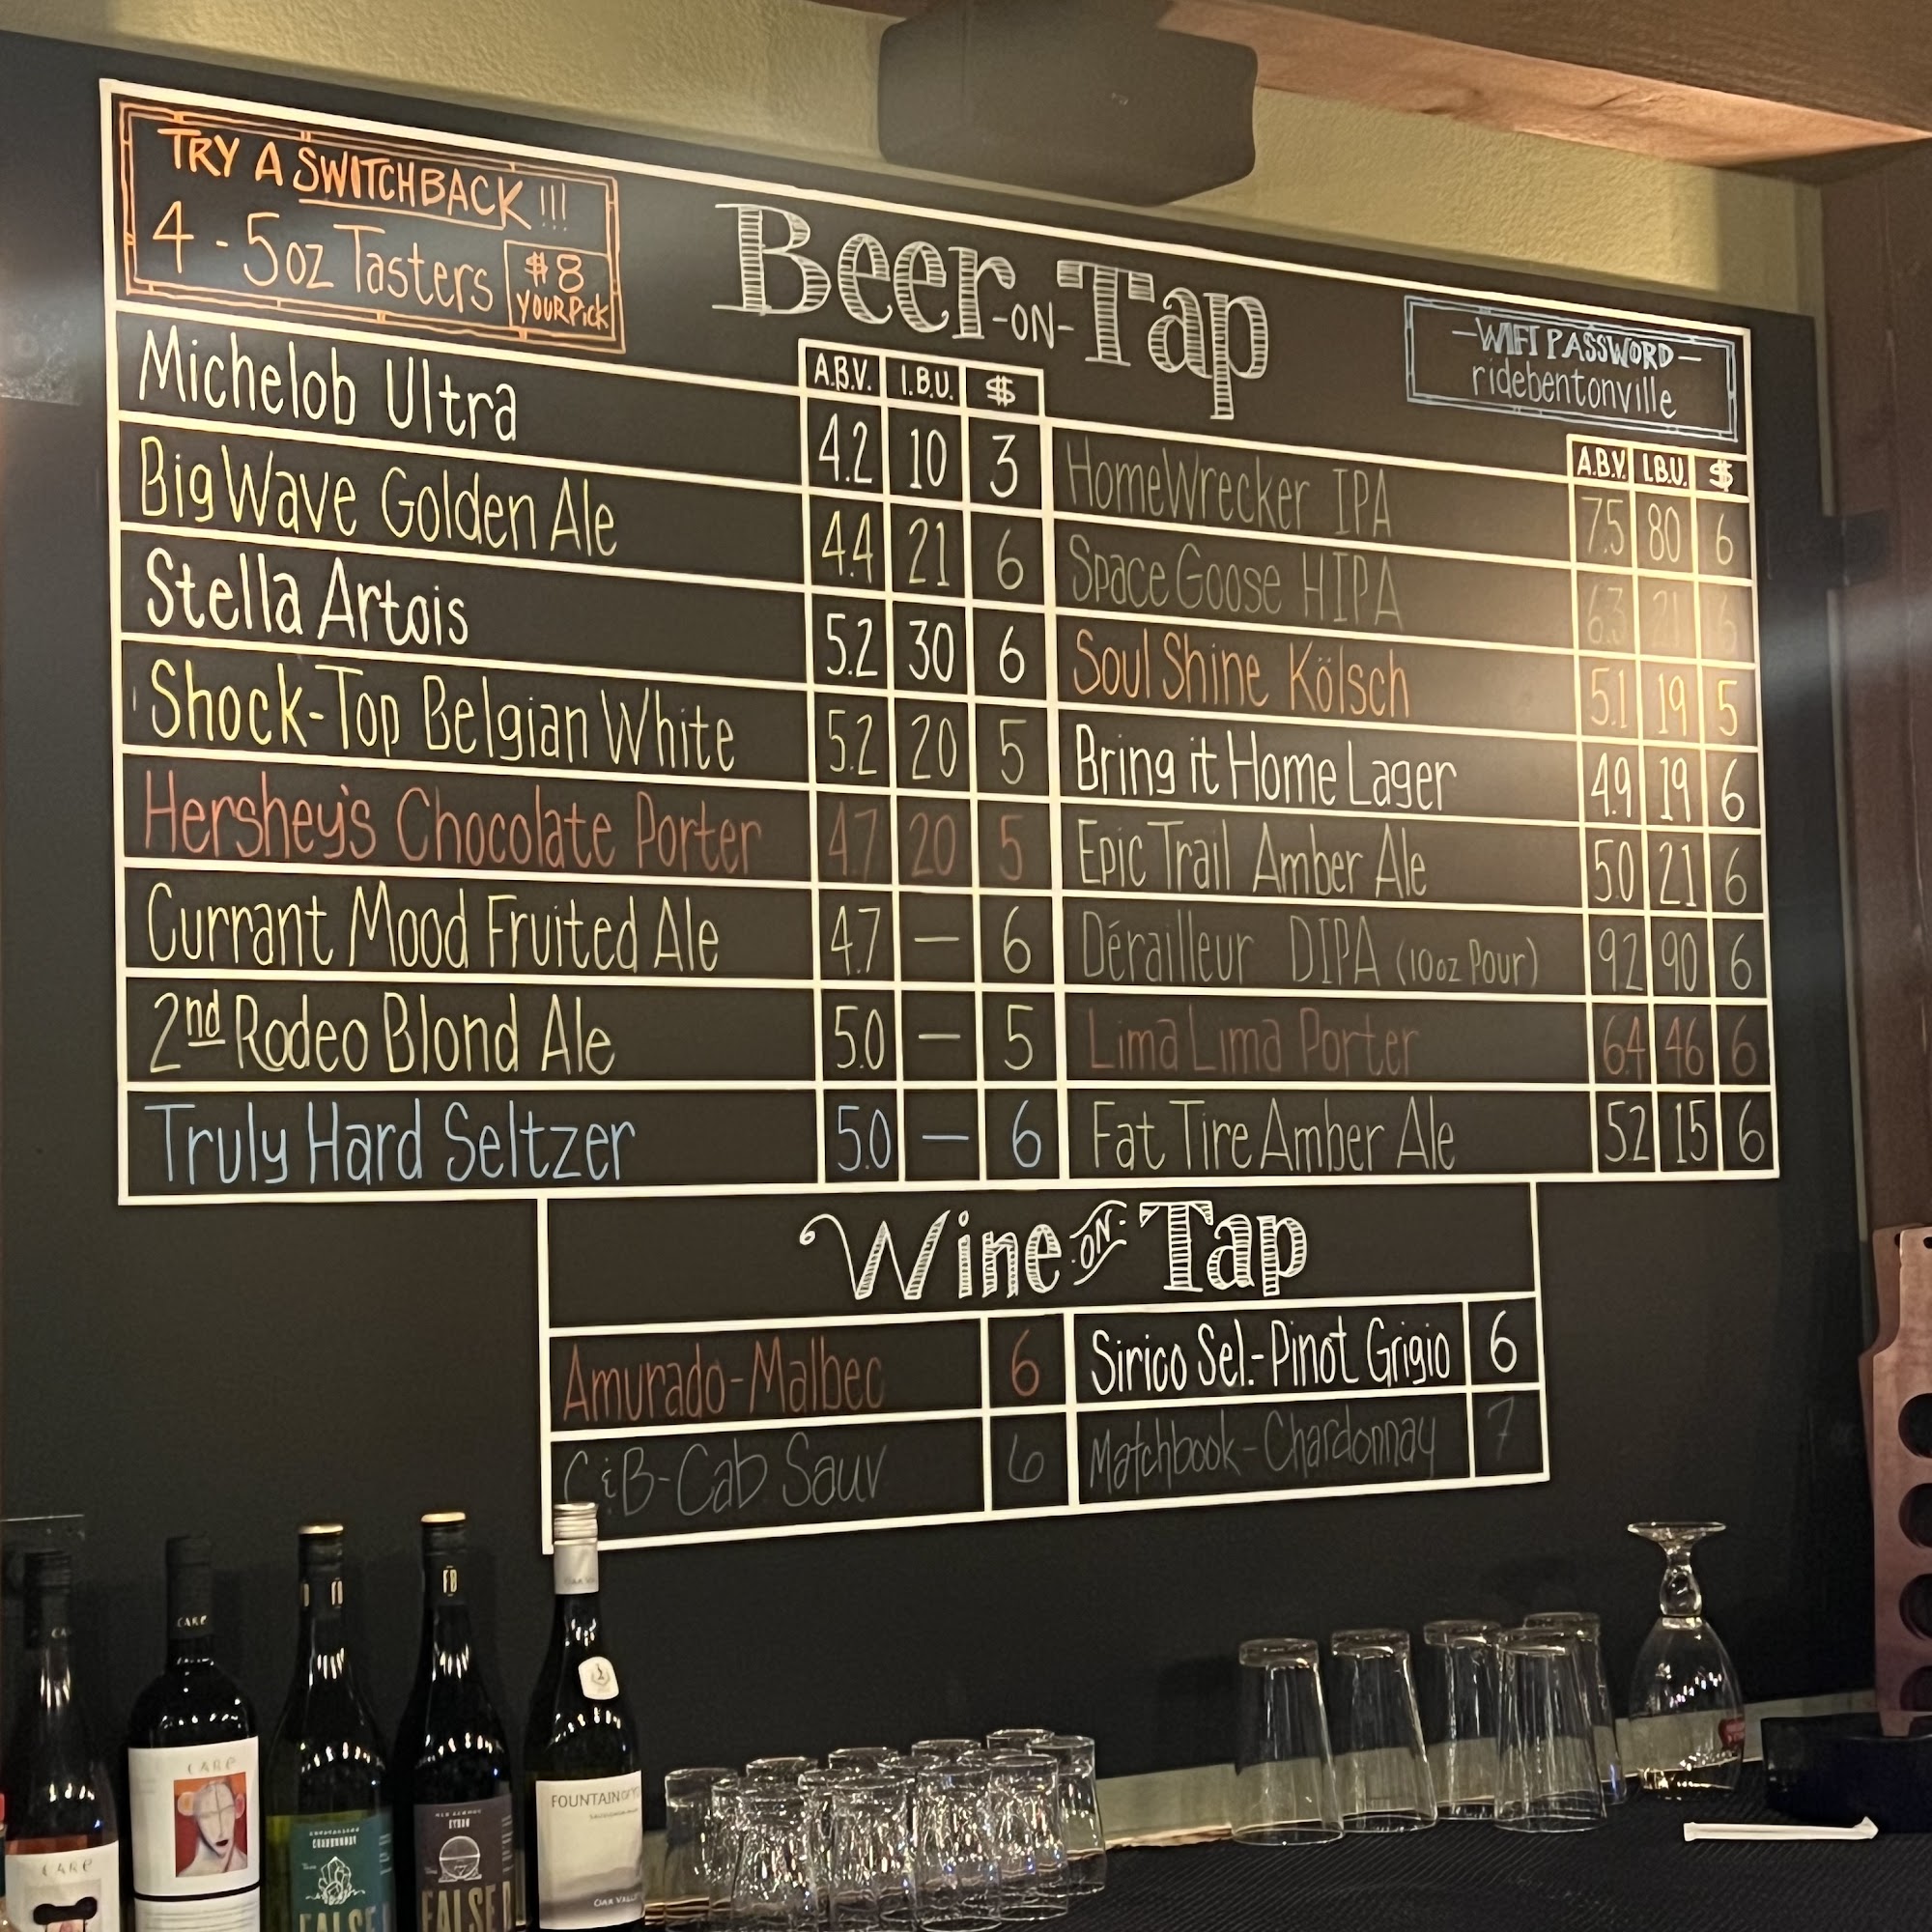 TRY A SWITCHBACK !!!
4 - 5oz Tasters
$8
YOUR PICK
Beer -ON- Tap
—WIFI PASSWORD—
ridebentonville
A.B.V. I.B.U. $
Michelob Ultra 4.2 10 3
Big Wave Golden Ale 4.4 21 6
Stella Artois 5.2 30 6
Shock-Top Belgian White 5.2 20 5
Hershey's Chocolate Porter 4.7 20 5
Currant Mood Fruited Ale 4.7 — 6
2nd Rodeo Blond Ale 5.0 — 5
Truly Hard Seltzer 5.0 — 6
A.B.V. I.B.U. $
HomeWrecker IPA 7.5 80 6
Space Goose HIPA 6.3 21 6
Soul Shine Kölsch 5.1 19 5
Bring it Home Lager 4.9 19 6
Epic Trail Amber Ale 5.0 21 6
Dérailleur DIPA (10oz Pour) 9.2 90 6
Lima Lima Porter 6.4 46 6
Fat Tire Amber Ale 5.2 15 6
Wine -ON- Tap
Amurado-Malbec 6
C&B-Cab Sauv 6
Sirico Sel.-Pinot Grigio 6
Matchbook-Chardonnay 7
CARE
CARE
CARE
FB
CHARDONNAY
FALSE
SYRAH
FALSE
FOUNTAIN OF
OAK VALLEY